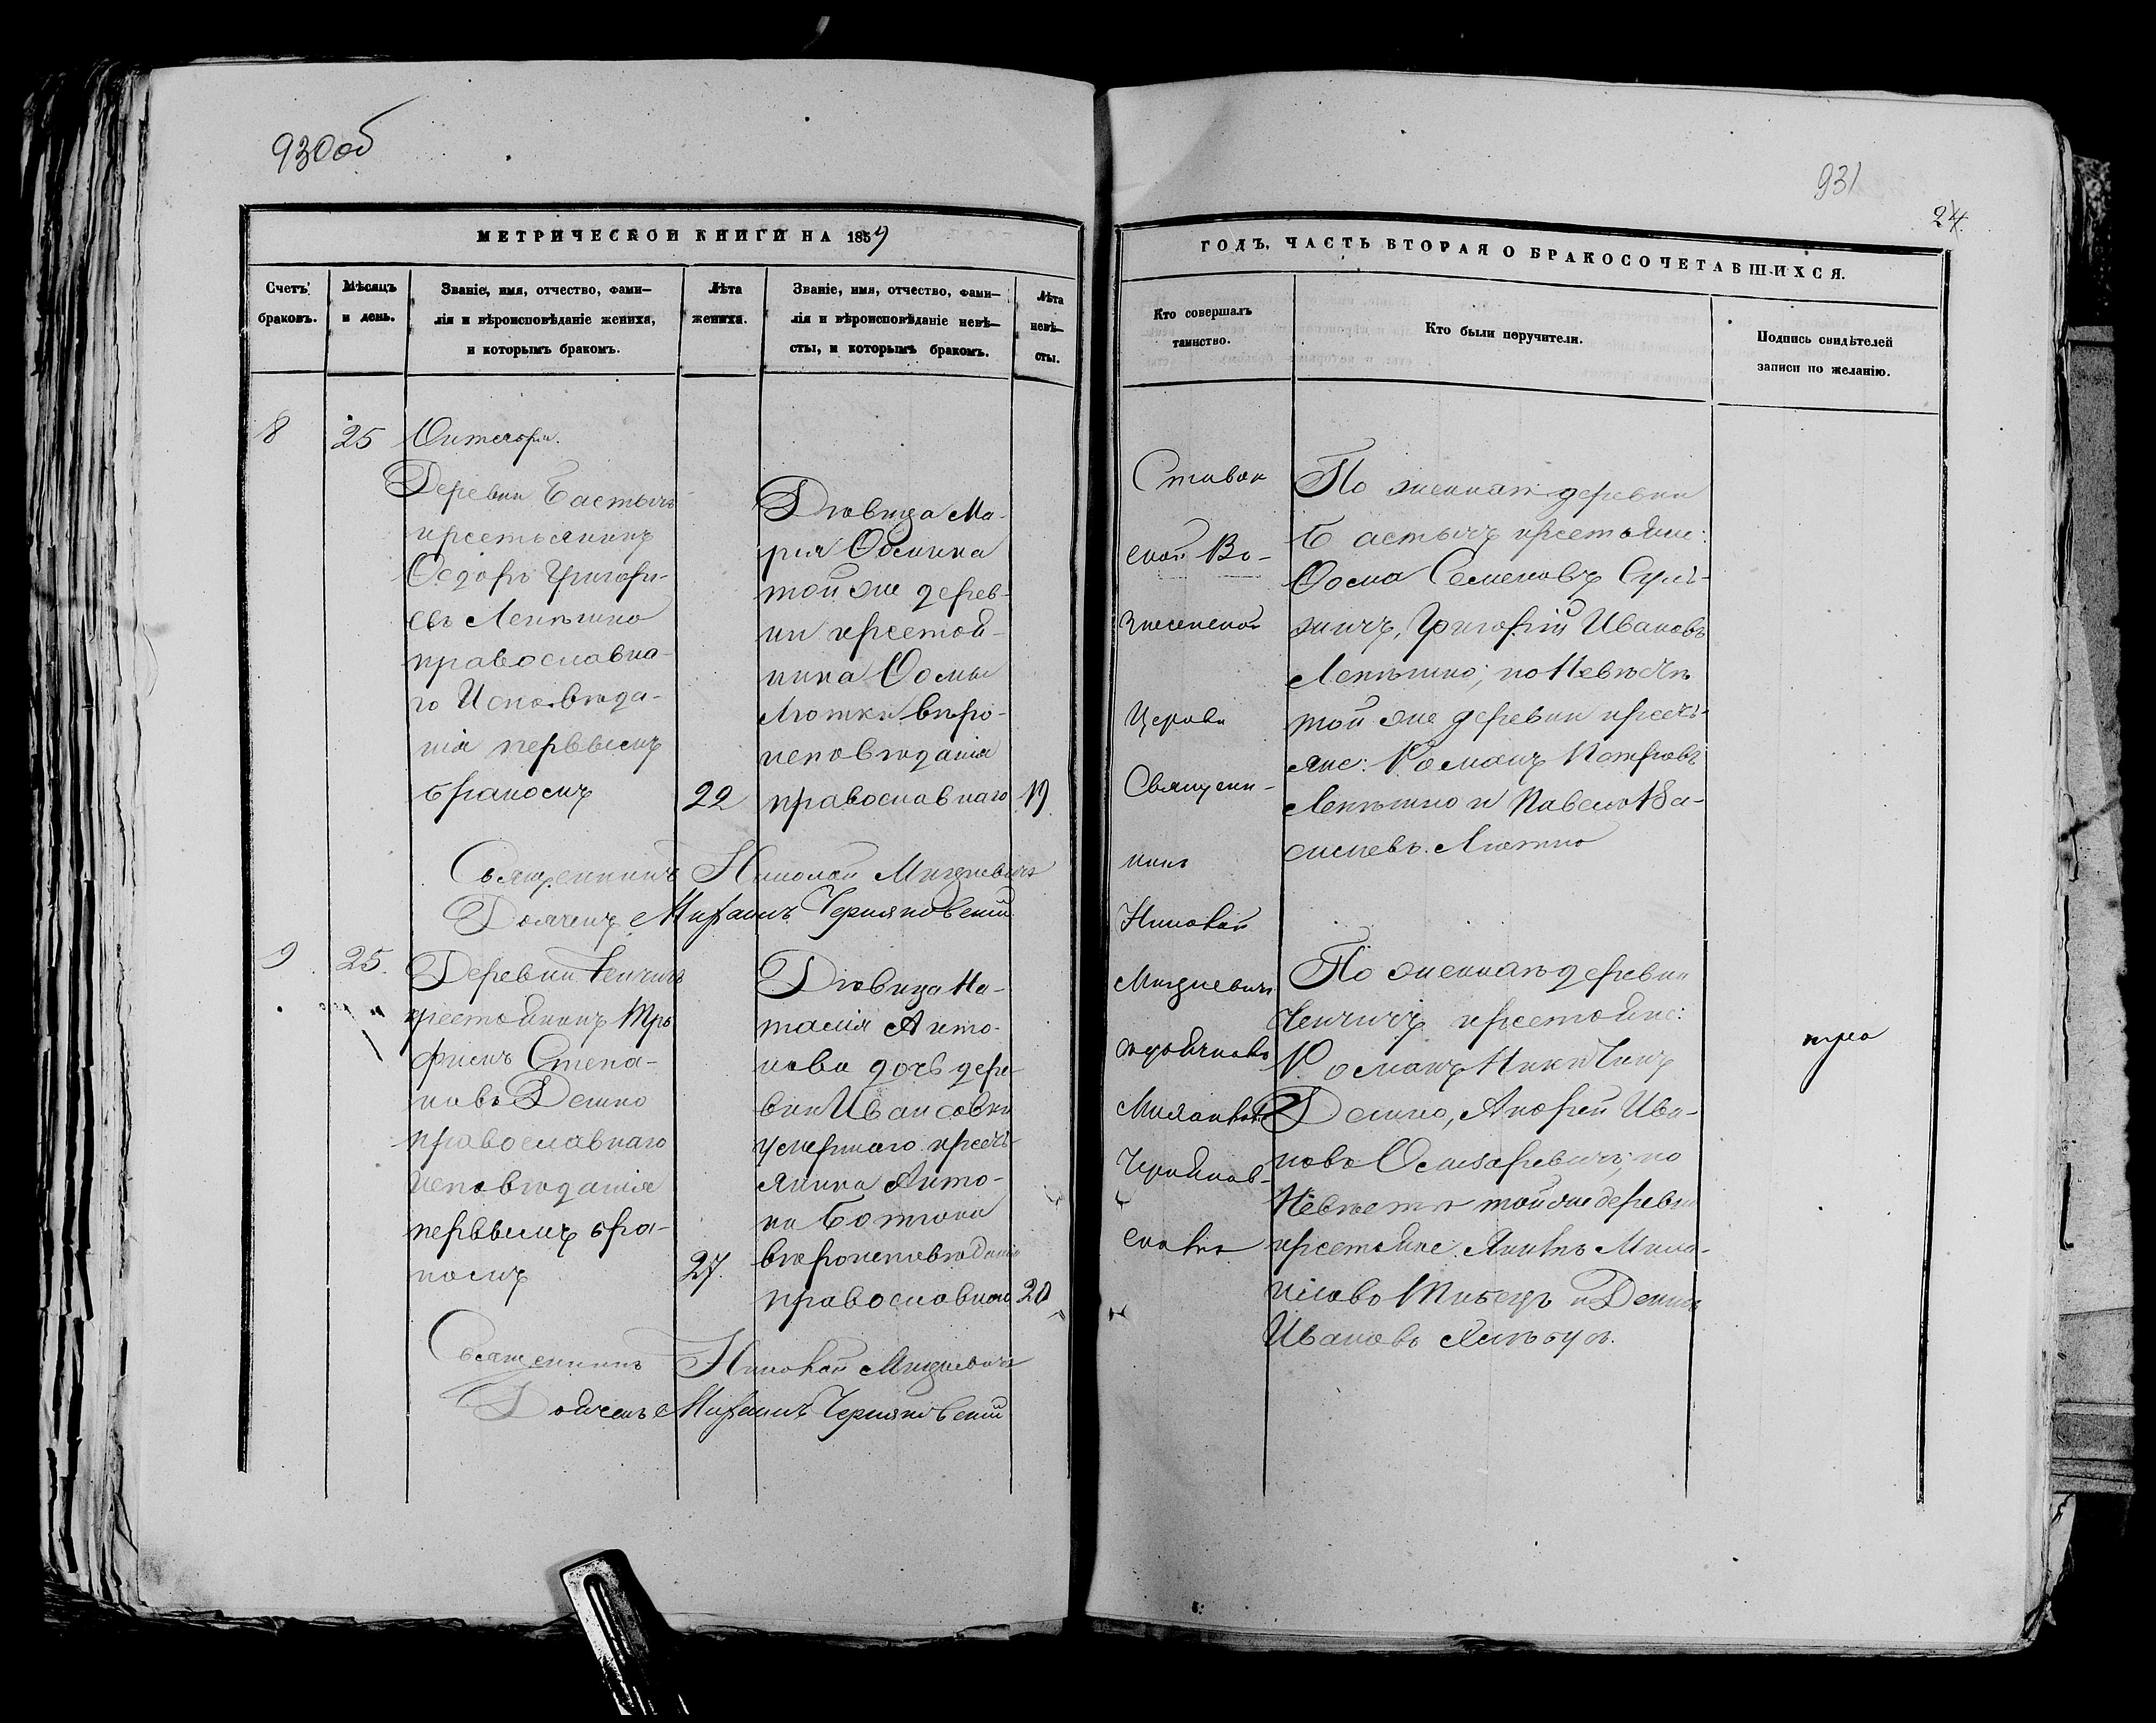 930об
МЕТРИЧЕСКОЙ КНИГИ НА 1859
Счетъ
браковъ.
Мѣсяцъ
и день.
Званіе, имя, отчество, фами—
лія и вѣроисповѣданіе жениха,
и которымъ бракомъ.
Лѣта
жениха.
Званіе, имя, отчество, фами—
лія и вѣроисповѣданіе невѣ—
сты, и которымъ бракомъ.
Лѣта
невѣ—
сты.
8
25
Октября.
Деревни
крестьянинъ
Ѳедоръ Григорі-
евъ Лемѣшко
православна-
го Исповѣда-
нія первымъ
бракомъ
22
Дѣвица Ма-
рія Ѳомина
той же дерев-
ни крестья-
нина Ѳомы
Лютки вѣро-
исповѣданія
православнаго
19
Священникъ Николай
Дьячекъ Михаилъ Черняковскій
9
25.
Деревни Ченчичъ
крестьянинъ Тро
фимъ Степа-
новъ Демко
православнаго
исповѣданія
первымъ бра-
комъ
27.
Дѣвица На-
талія Анто-
нова дочь дере-
вни Ивансовки
умершаго кресть-
янина Анто-
на
вѣроисповѣданія
православнаго
20
Священникъ Николай
Дьячекъ Михаилъ Черняковскій
931
24
ГОДЪ, ЧАСТЬ ВТОРАЯ О БРАКОСОЧЕТАВШИХСЯ.
Кто совершалъ
таинство.
Кто были поручители.
Подпись свидѣтелей
записи по желанію.
Ставок
ской Во-
знесенской
Церкви
Священ-
никъ
Николай
съ дьячкомъ
Михаиломъ
Черняков-
скимъ
По женихѣ деревни
крестьяне:
Ѳома Семеновъ
Григорій Ивановъ
Лемѣшко; по Невѣстѣ
той же деревни кресть-
яне: Романъ Петровъ
Лемѣшко и Павелъ Ва-
сильевъ Лютко
По женихѣ деревни
Ченчичъ крестьяне:
Романъ Никитинъ
Демко, Андрей Ива-
новъ по
Невѣстѣ той же деревни
крестьяне Яковъ
и Демид
Ивановъ